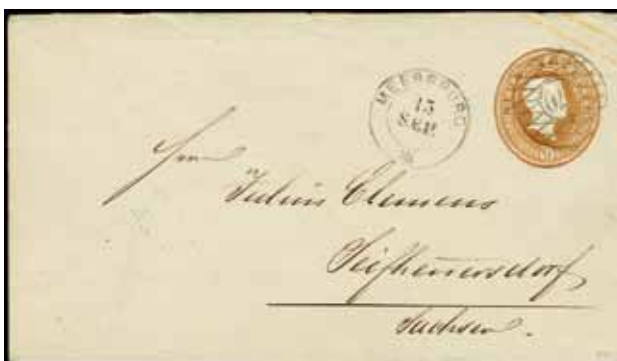 MEERSBURG
13
SEP.
Herrn
Julius Clemens
Seifhennersdorf
Sachsen.